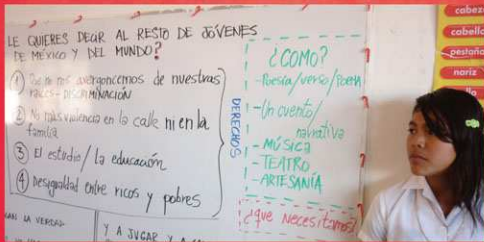 LE QUIERES DECIR AL RESTO DE JÓVENES
DE MÉXICO Y DEL MUNDO?
① Que no nos avergoncemos de nuestras
raíces - DISCRIMINACIÓN
② No más violencia en la calle ni en la
familia
③ El estudio / la educación
④ Desigualdad entre ricos y pobres
DERECHOS
¿COMO?
- Poesía/verso/POEMA
- Un cuento/
narrativa
- MÚSICA
- TEATRO
- ARTESANÍA
¿que necesitamos?
LA VERDAD
Y A JUGAR Y A
cabez
cabello
pestaña
nariz